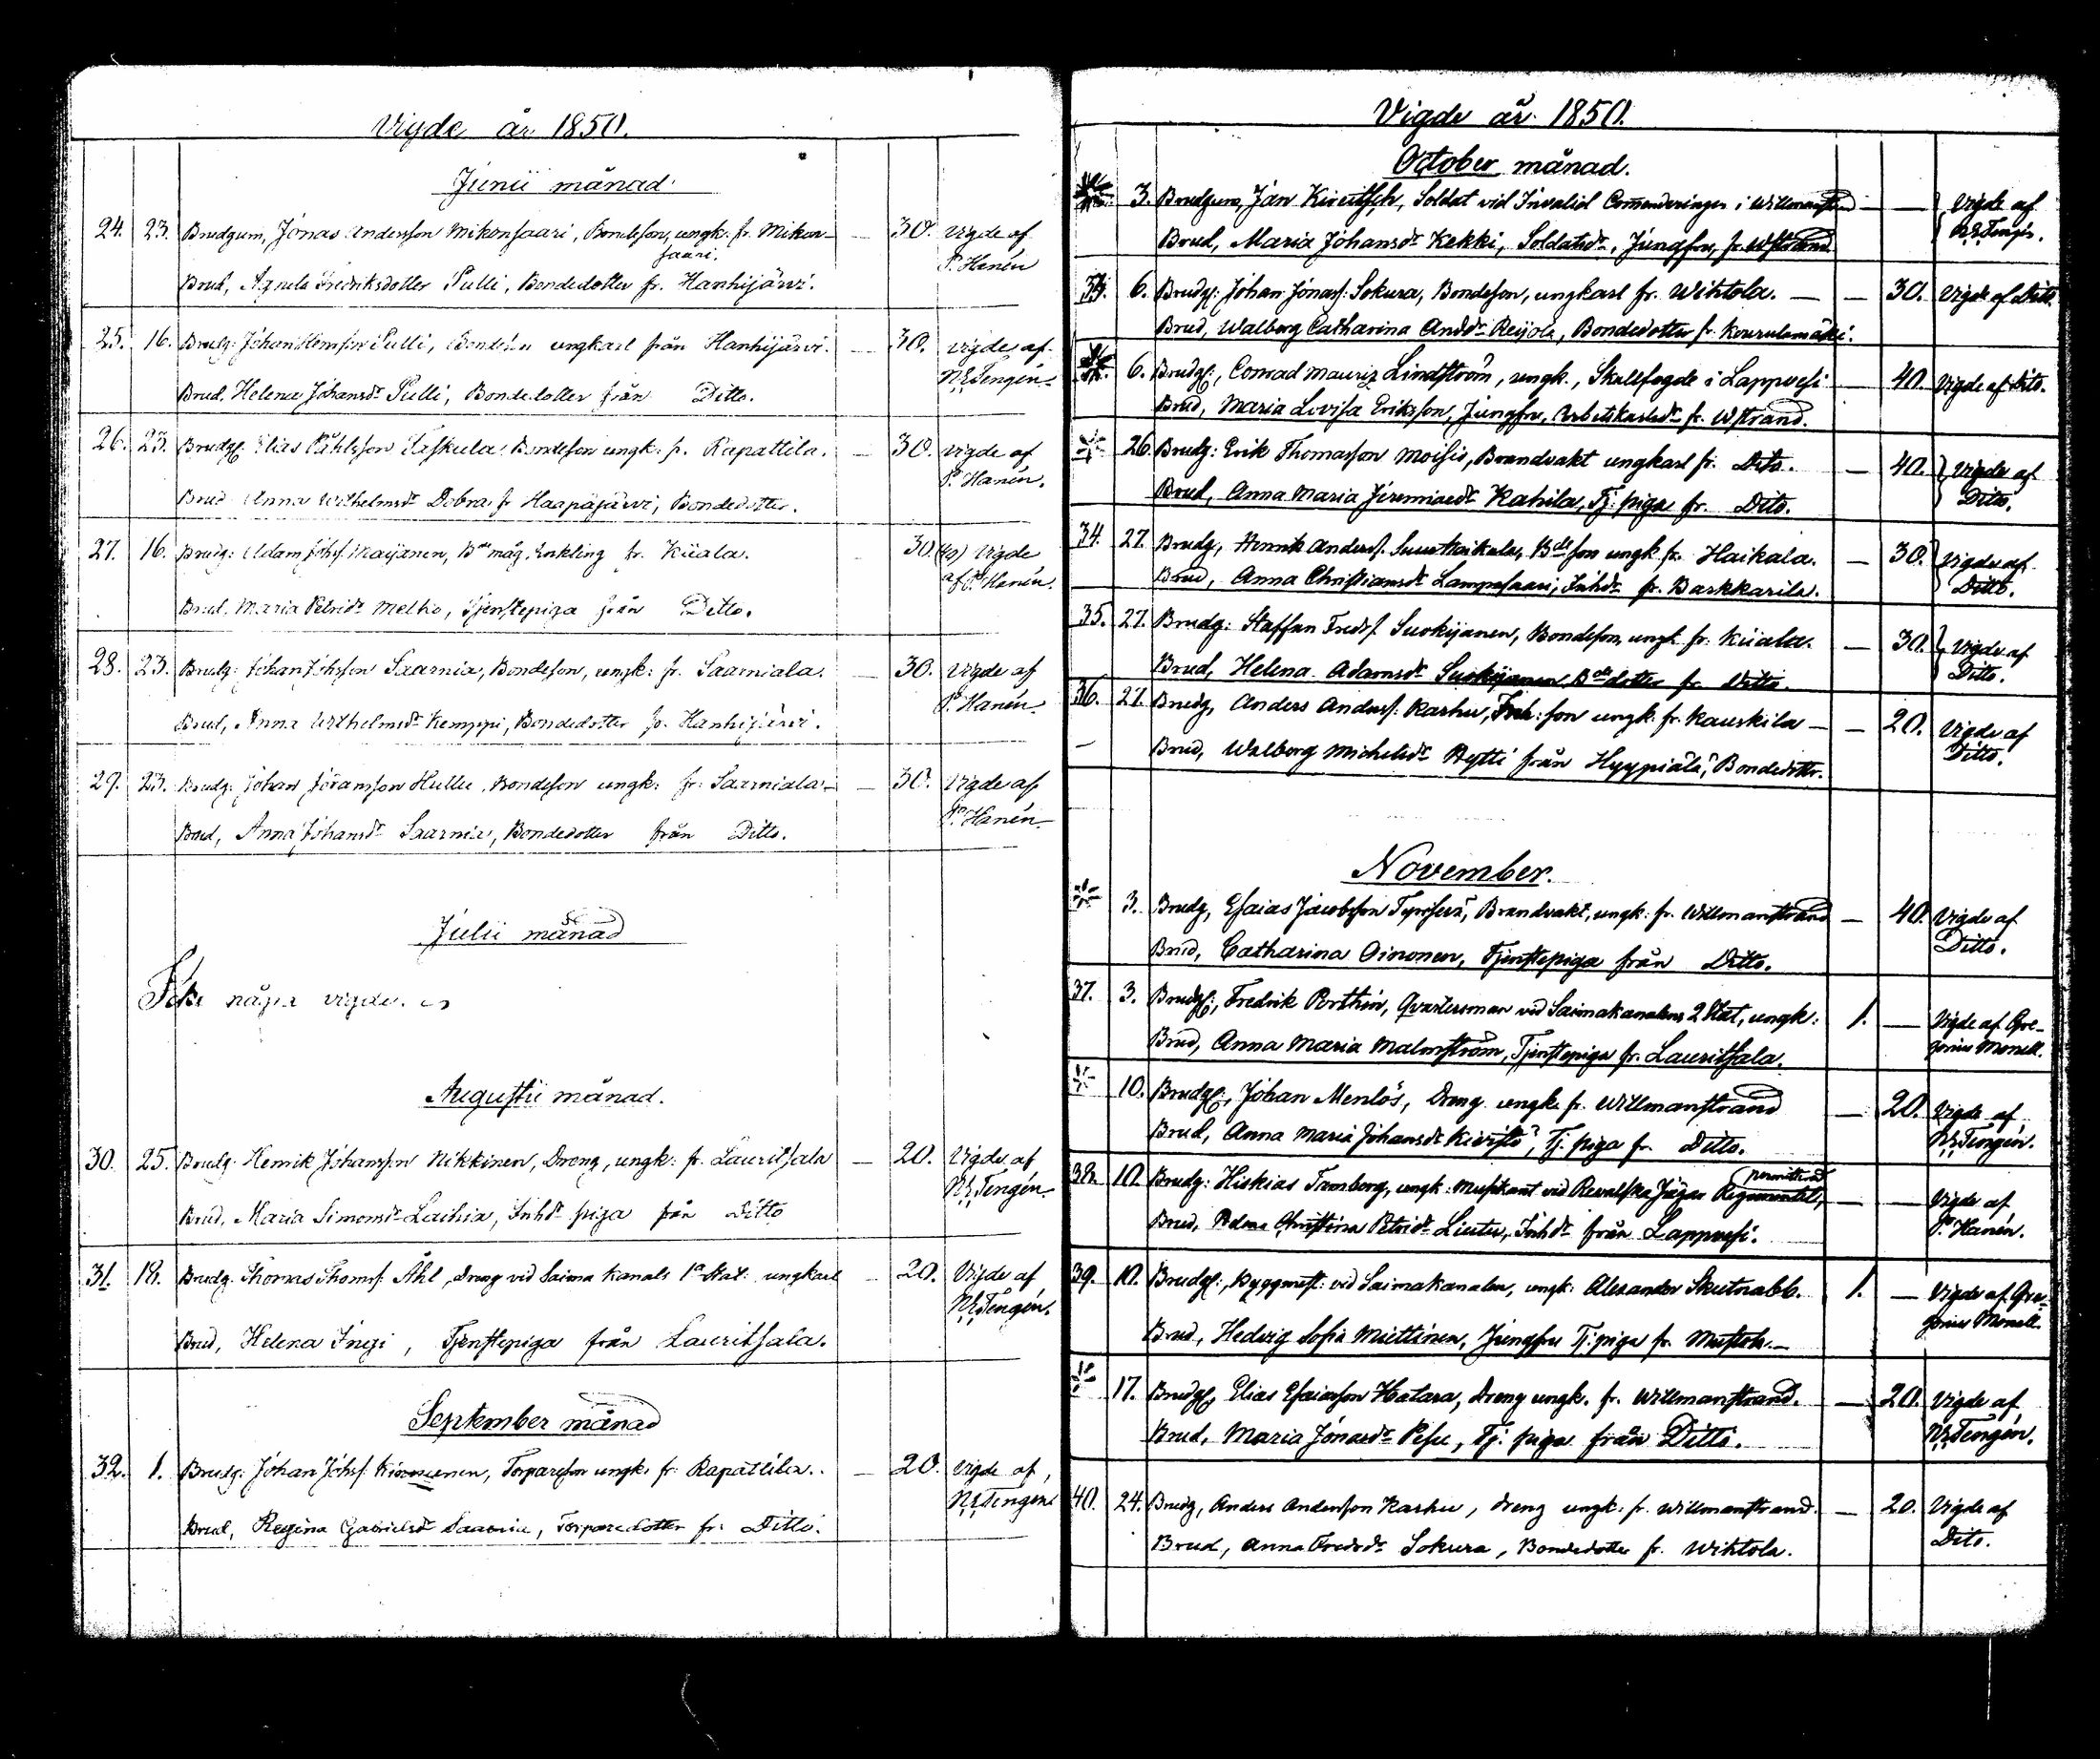 Vigde år 1850.
Junii månad
24. 23. Brudgum, Jonas Andersson Mikonsaari, Bondeson, ungk: fr. Mikon- — 30. Vigde af
saari. P. Hanén
Brud, Agneta Fredriksdotter Pulli, Bondedotter fr. Hanhijärvi.
25. 16. Brudg: Johan Hemsson Pulli, Bondeson ungkarl från Hanhijärvi. — 30. Vigde af
Brud, Helena Johansdr Pulli, Bondedotter från Ditto. N.E. Tengén
26. 23. Brudg: Elias Påhlsson Taskula Bondeson ungk: fr. Rapattila. — 30. Vigde af
P. Hanén.
Brud Anna Wilhelmsdr Dobra fr Haapajärvi, Bondedotter.
27. 16. Brudg: Adam Johsf. Maijanen, Bde måg, Enkling fr. Kiiala. 30. (40) Vigde
af P. Hanén.
Brud, Maria Petridr Melko, Tjenstepiga från Ditto.
28. 23. Brudg: Johan Johsson Saarnia, Bondeson, ungk: fr. Saarniala. — 30. Vigde af
P. Hanén
Brud, Anna Wilhelmsdr Kemppi, Bondedotter fr. Hanhijärvi.
29. 23. Brudg: Johan Göransson Hullu, Bondeson ungk: fr. Saarniala — 30. Vigde af
P. Hanén
Brud, Anna Johansdr Saarnia, Bondedotter från Ditto.
Julii månad
Icke några vigde.
Augustii månad.
30. 25. Brudg: Henrik Johansson Nikkinen, Dreng, ungk: fr. Lauritsala — 20. Vigde af
N.E. Tengén
Brud, Maria Simonsdr Laihia, Inhdr piga från Ditto
31. 18. Brudg. Thomas Thomsf. Åhl, dreng vid Saima Kanals 1a Stat: ungkarl — 20. Vigde af
N.E. Tengén.
Brud, Helena Ingi, Tjenstepiga från Lauritsala.
September månad
32. 1. Brudg: Johan Johsf. Kiononen, Torpareson ungk: fr. Rapattila. — 20. Vigde af
N.E. Tengén
Brud, Regina Gabrielsdr Saarnia, Torparedotter fr: Ditto.
Vigde år 1850.
October månad.
3. Brudgum, Jan Kirutsch, Soldat vid Invalid Commenderingen i Willmanstrand — — Vigde af
Brud, Maria Johansdr Kekki, Soldatsdr, Jungfru, fr. Wstrand. N.E. Tengén.
33. 6. Brudg: Johan Jonasf: Sokura, Bondeson, ungkarl fr. Wihtola. — — 30. Vigde af Ditto
Brud, Walborg Catharina Anddr Reijola, Bondedotter fr. Kourulamäki.
6. Brudg:, Conrad Mauriz Lindström, ungk., Skallfogde i Lappvesi — 40. Vigde af Dito.
Brud, Maria Lovisa Eriksson, Jungfru, Arbetskarlsdr fr. Wstrand.
26. Brudg: Erik Thomasson Moisio, Brandvakt ungkarl fr. Dito. — 40. Vigde af
Brud, Anna Maria Jeremiaedr Kahila, Tj: piga fr. Dito. Ditto.
34. 27. Brudg, Henrik Andersf. Suurhaikala, Bde son ungk fr. Haikala. — 30. Vigde af
Brud, Anna Christiansdr Lampisaari, Inhdr fr. Barkkarila. Ditto.
35. 27. Brudg: Staffan Fredsf. Suokijanen, Bondeson, ungk. fr. Kiiala. — 30. Vigde af
Brud, Helena Adamsdr Suokijanen Bde dotter fr Ditto. Ditto.
36. 27. Brudg, Anders Andersf. Karhu, Inh: son ungk: fr. Kauskila — — 20. Vigde af
Brud, Walborg Michelsdr Hytti från Hyypiälä, Bondedotter. Ditto.
November.
3. Brudg, Esaias Jacobsson Typeserä, Brandvakt, ungk: fr. Willmanstrand — 40. Vigde af
Brud, Catharina Oinonen, Tjenstepiga från Ditto. Ditto.
37. 3. Brudg:, Fredrik Porthén, Qvartersman vid Saimakanalens 2 Stat, ungk: 1. — Vigde af Gre-
Brud, Anna Maria Malmström, Tjenstepiga fr. Lauritsala. gorius Monell.
10. Brudg:, Johan Menlös, Dreng ungk. fr. Willmanstrand — 20. Vigde af
Brud, Anna Maria Johansdr Kivistö, Tj. piga fr. Ditto. N.E. Tengén.
38. 10. Brudg: Hiskias Tronborg, ungk: Musikant vid Revalska Jägar Regimentet, permitterad — — Vigde af
Brud, Christina Petridr Liutu, Inhdr från Lappvesi. P. Hanén.
39. 10. Brudg:, Byggmest: vid Saimakanalen, ungk: Alexander Skutnabb. 1. — Vigde af Gre-
Brud, Hedvig Sofia Miettinen, Jungfru Tj: piga fr. Mustola. — gorius Monell.
17. Brudg:, Elias Esaiasson Hatara, Dreng ungk. fr. Willmanstrand. — 20. Vigde af
Brud, Maria Jonaedr Pesu, Tj: piga från Ditto. N.E. Tengén.
40. 24. Brudg, Anders Andersson Karhu, dreng ungk: fr. Willmanstrand. — 20. Vigde af
Brud, Anna Fredsdr Sokura, Bondedotter fr. Wihtola. Dito.